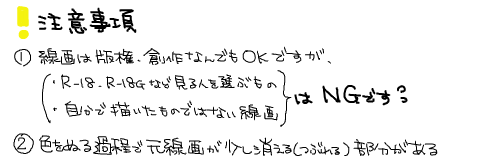 ! 注意事項
① 線画は版権・創作なんでもOKですが、
・R-18、R-18Gなど見る人を選ぶもの
・自分で描いたものではない線画
はNGです?
② 色をぬる過程で元線画が少し消える(つぶれる)部分がある